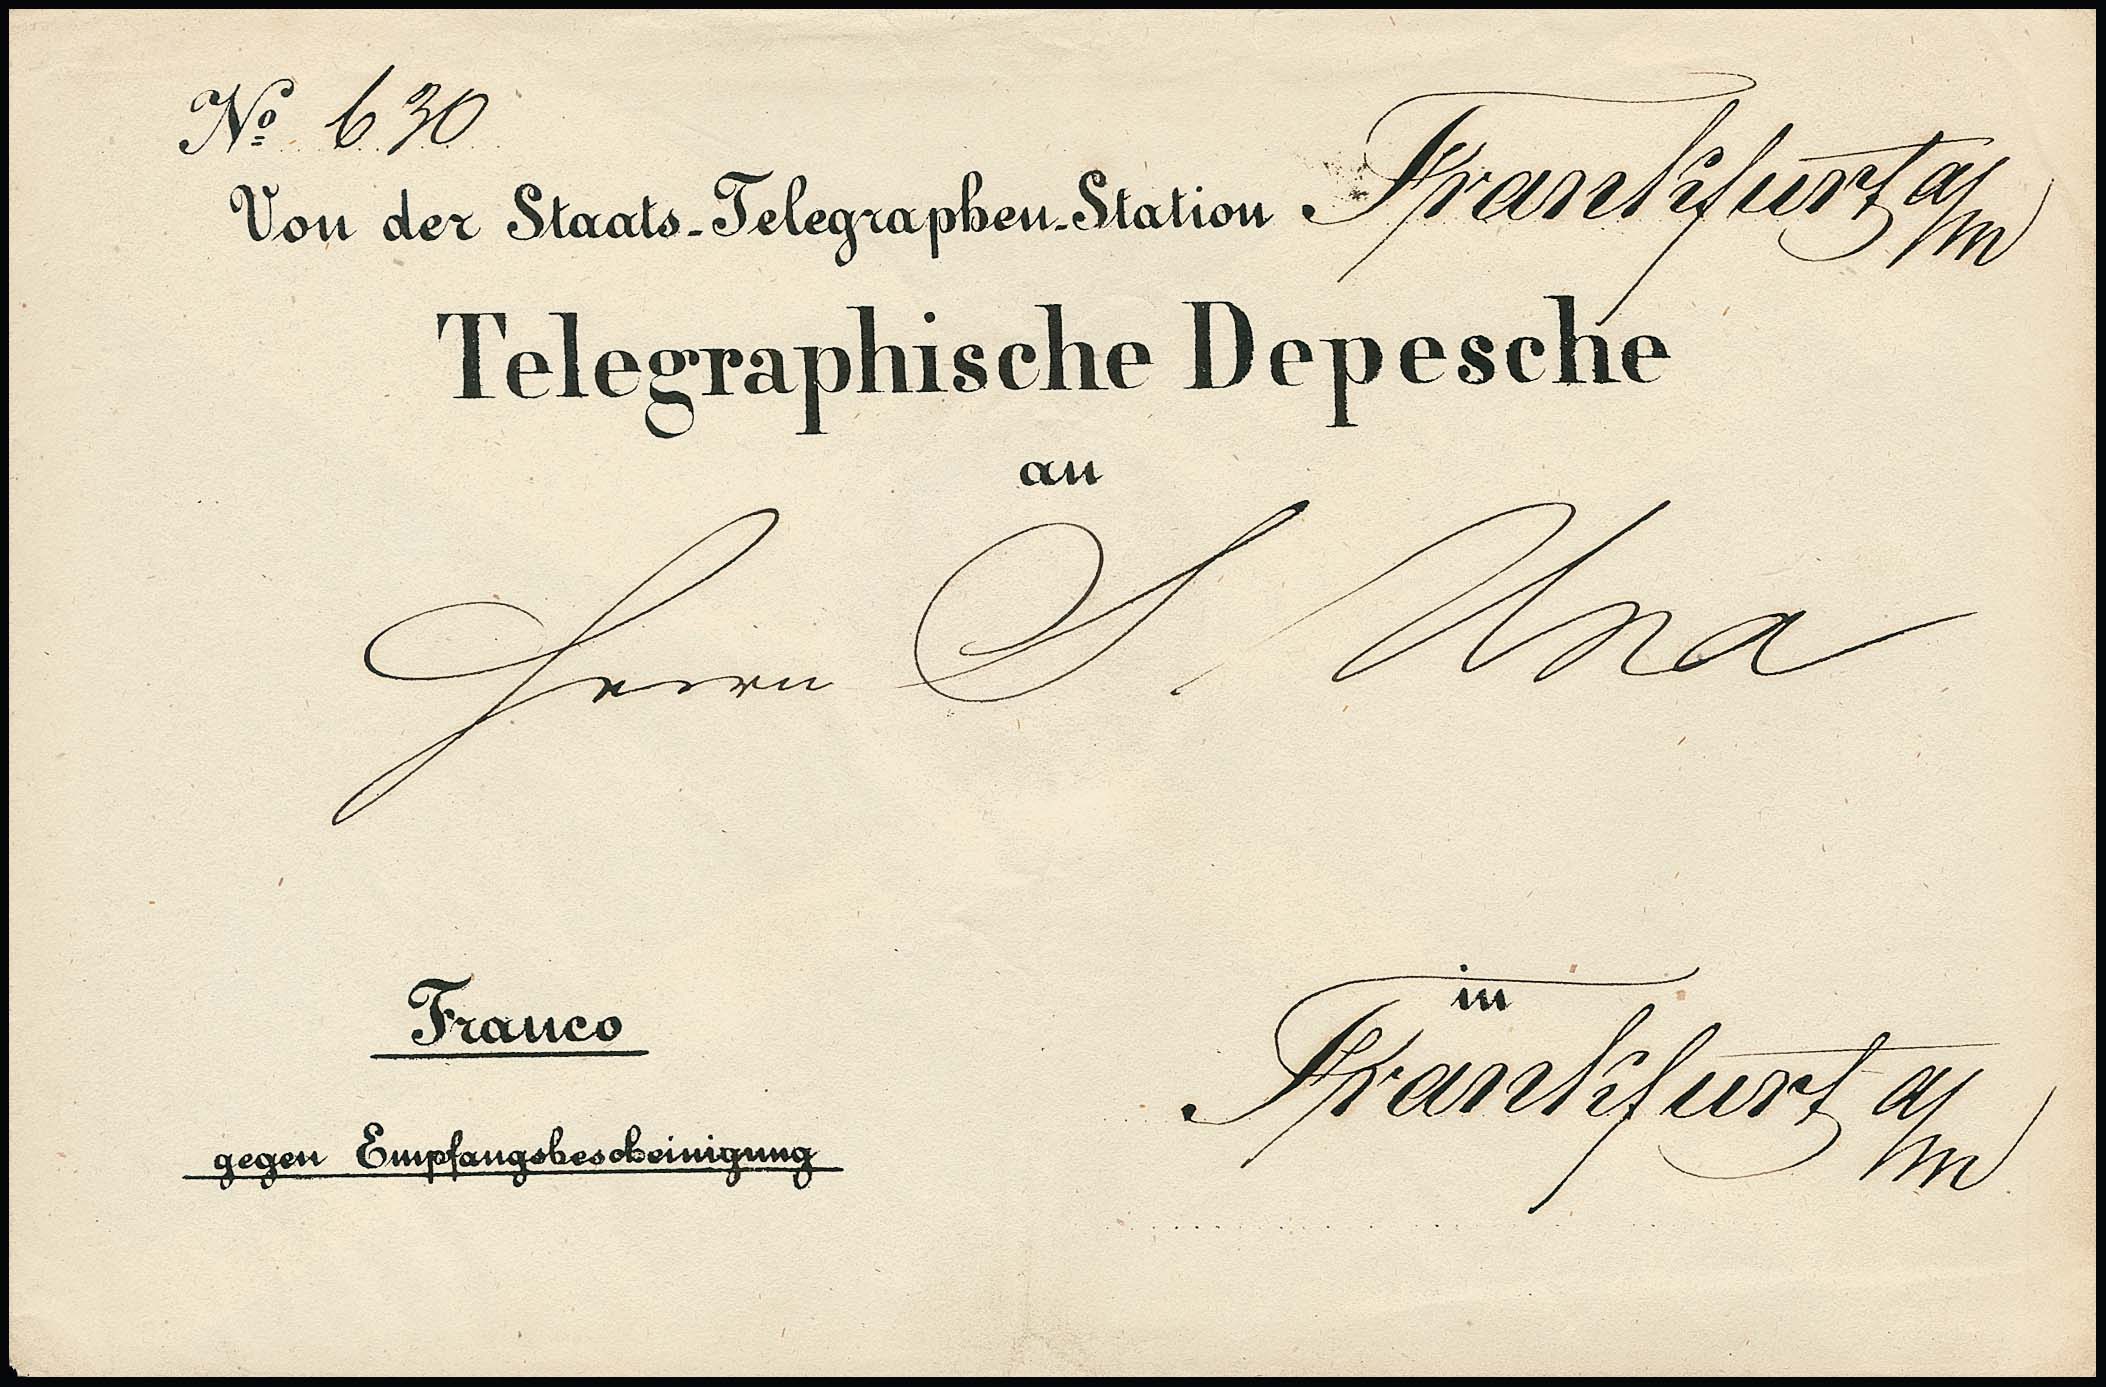 No. 630
Von der Staats-Telegraphen-Station Frankfurt a/m
Telegraphische Depesche
an
Herrn S. Una
in
Franco
Frankfurt a/m
gegen Empfangsbescheinigung